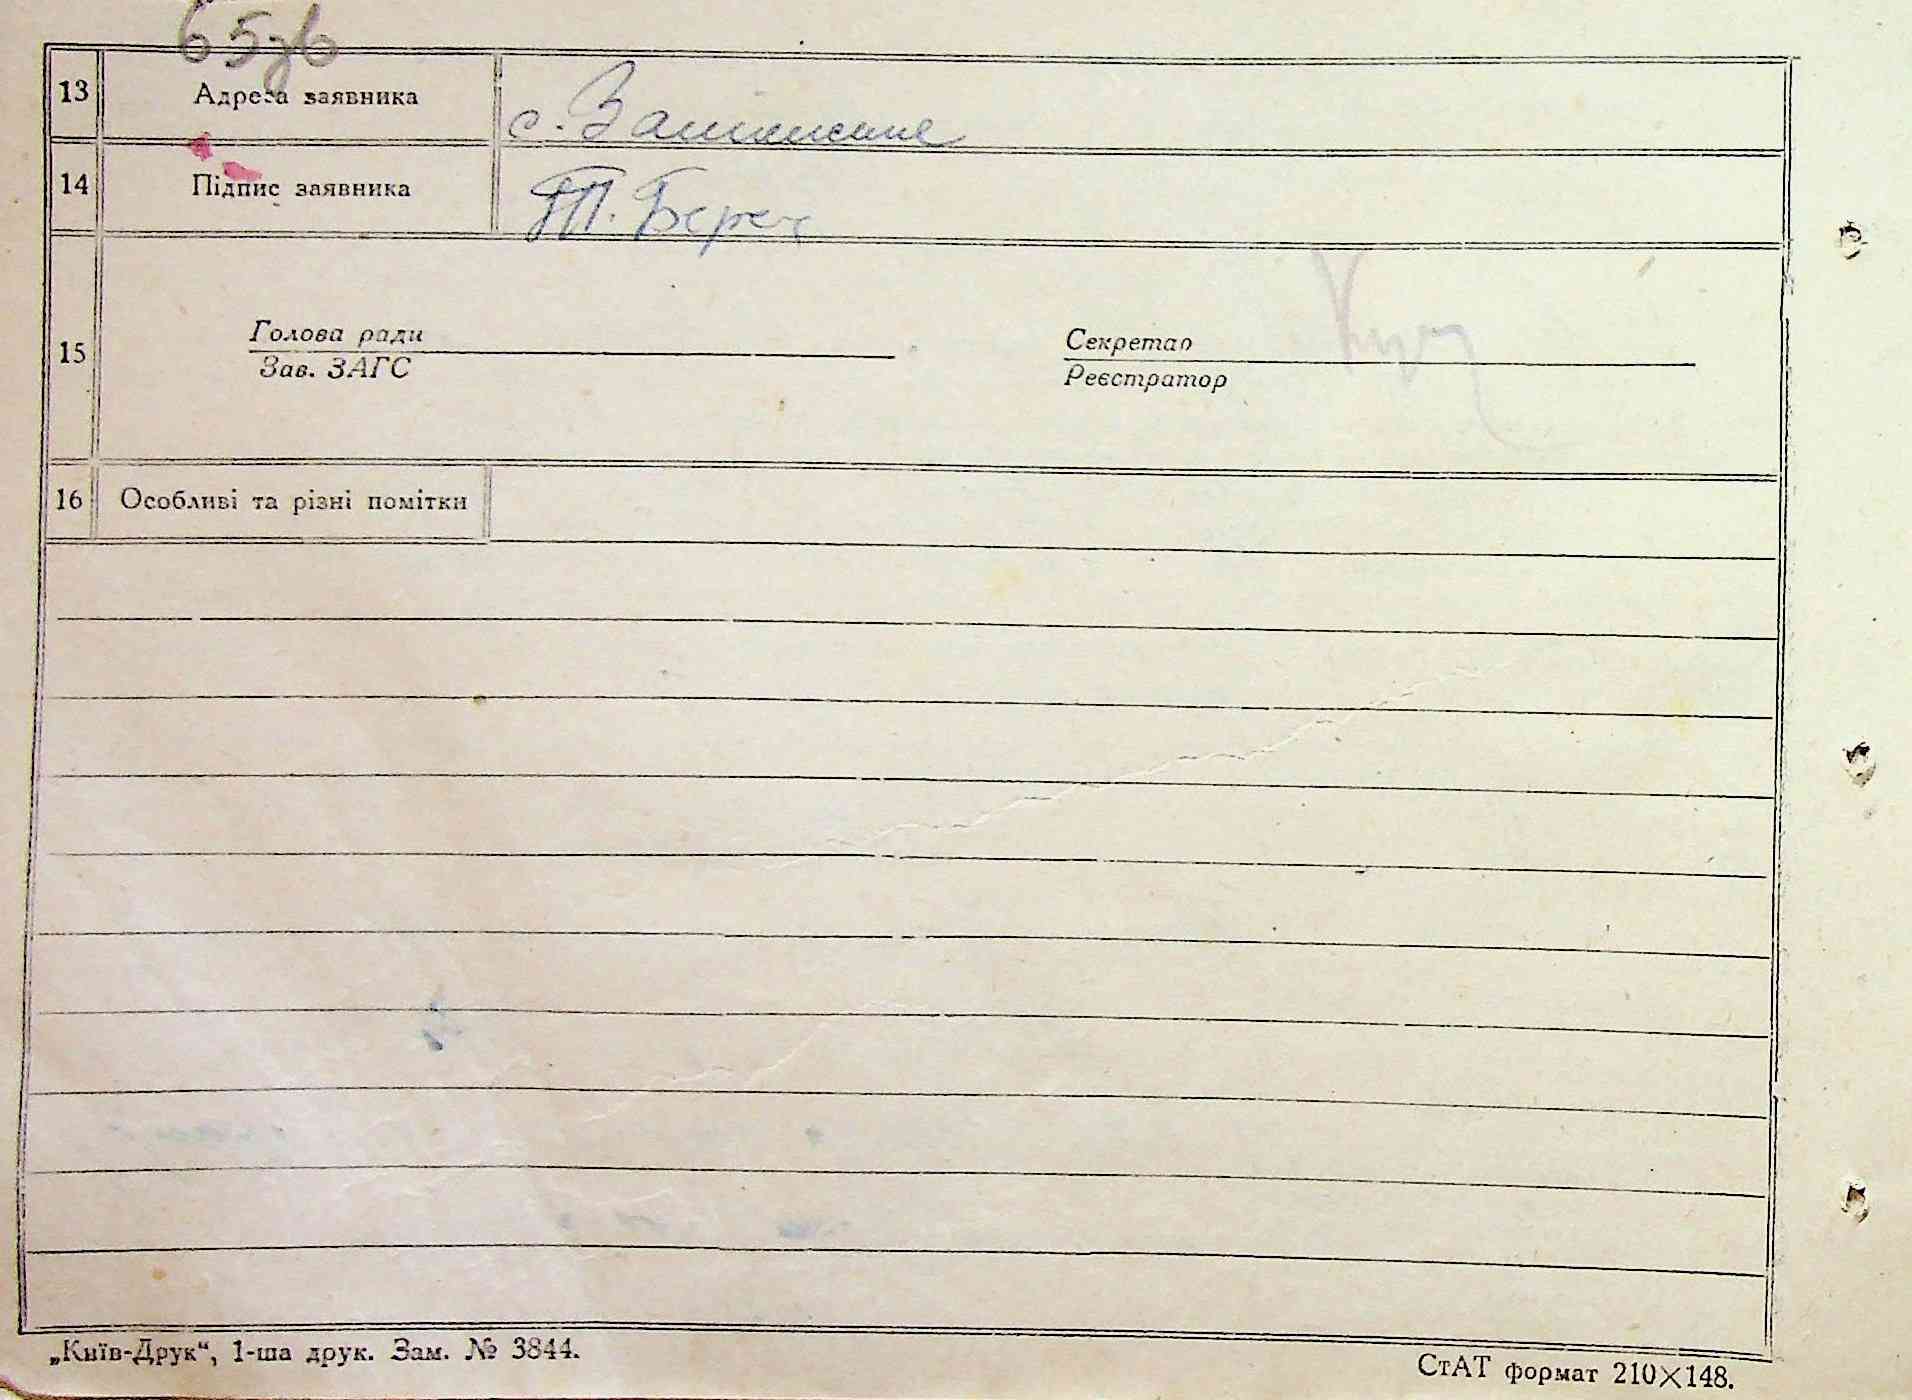 65зв
13 Адреса заявника с.
14 Підпис заявника Т. Берез
15
Голова ради Секретар
Зав. ЗАГС Реєстратор
16 Особливі та різні помітки
„Київ-Друк“, 1-ша друк. Зам. № 3844.
СтАТ формат 210×148.